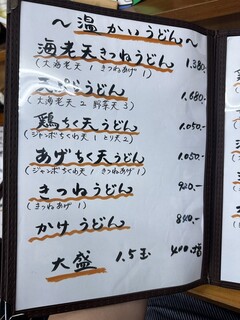 ～温かいうどん～
海老天きつねうどん 1,380.-
(大海老天1 きつねあげ1)
うどん 1,680.-
(大海老天2 野菜天3)
鶏ちく天うどん 1,050.-
(ジャンボちくわ天1 とり天2)
あげちく天うどん 1,050.-
(ジャンボちくわ天1 きつねあげ1)
きつねうどん 920.-
(きつねあげ1)
かけうどん
大盛 1.5玉 400.-増